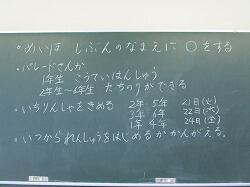 ・めいぼ じぶんのなまえに○をする
・パレードさんか
1年生 こうていはんしゅう
2年生〜6年生 たちのりができる
・いちりんしゃをきめる 2年 5年 21日(火)
3年 6年 22日(水)
1年 4年 24日(金)
・いつかられんしゅうをはじめるかかんがえる。